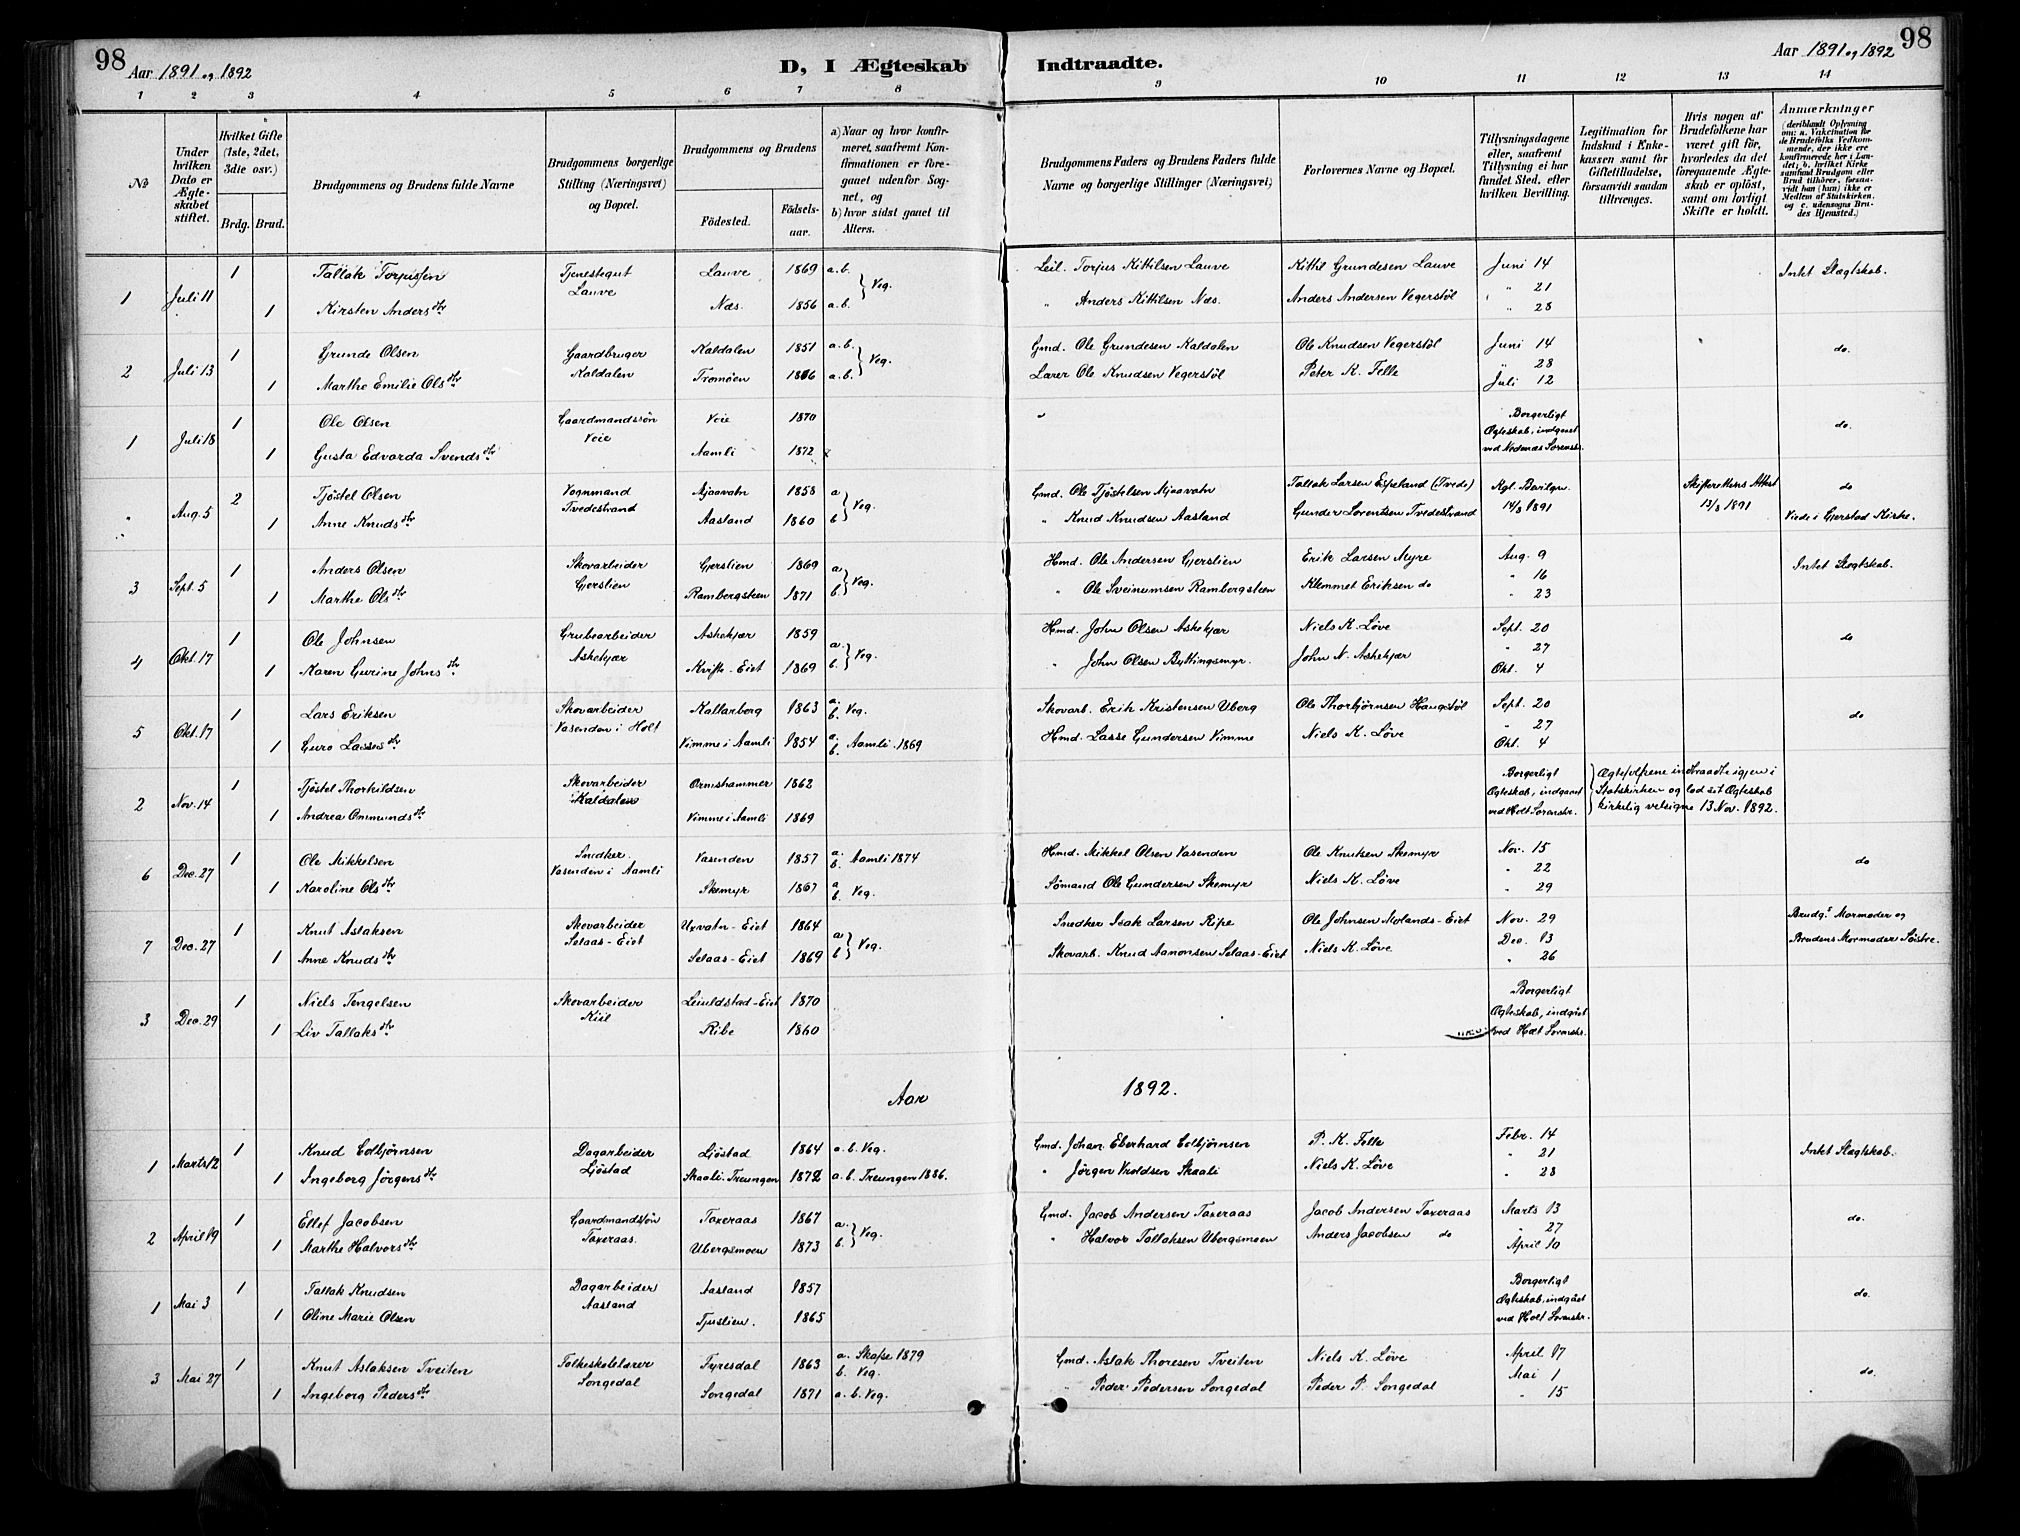 98
Aar 1891 og 1892
D, I Ægteskab Indtraadte.
Aar 1891 og 1892
98
1 2 3 4 5 6 7 8 9 10 11 12 13 14
No
Under hvilken Dato er Ægteskabet stiftet.
Hvilket Gifte (1ste, 2det, 3die osv.)
Brdg. Brud.
Brudgommens og Brudens fulde Navne
Brudgommens borgerlige Stilling (Næringsvei) og Bopæl.
Brudgommens og Brudens
Födested.
Födselsaar.
a) Naar og hvor konfirmeret, saafremt Konfirmationen er foregaaet udenfor Sognet, og
b) hvor sidst gaaet til Alters.
Brudgommens Faders og Brudens Faders fulde Navne og borgerlige Stillinger (Næringsvei)
Forlovernes Navne og Bopæl.
Tillysningsdagene eller, saafremt Tillysning ei har fundet Sted, efter hvilken Bevilling.
Legitimation for Indskud i Enkekassen samt for Giftetilladelse, forsaavidt saadan tiltrænges.
Hvis nogen af Brudefolkene har været gift för, hvorledes da det foregaaende Ægteskab er oplöst, samt om lovligt Skifte er holdt.
Anmærkninger
(deriblandt Oplysning om: a. Vakcination for de Brudefolks Vedkommende, der ikke ere konfirmerede her i Landet; b. hvilket Kirkesamfund Brudgom eller Brud tilhörer, forsaavidt han (hun) ikke er Medlem af Statskirken, og c. udensogns Brudes Hjemsted.)
1 Juli 11 1 Tallak Torjussen Tjenestegut Lauve Lauve 1869 a. b. Veg. Leil. Torjus Kittilsen Lauve Kittil Grundesen Lauve Juni 14 Intet Slægtskab.
1 Kirsten Andersdtr Næs. 1856 a. b. " Anders Kittilsen Næs. Anders Andersen Vegerstøl " 21 " 28
2 Juli 13 1 Grunde Olsen Gaardbruger Kaldalen Kaldalen 1851 a. b. Veg. Gmd. Ole Grundesen Kaldalen Ole Knudsen Vegerstøl Juni 14 do.
1 Marthe Emilie Olsdtr Tromøen a. b. Lærer Ole Knudsen Vegerstøl Peter K. Felle " 28 Juli 12
1 Juli 18 1 Ole Olsen Gaardmandssøn Veie Veie 1870 " Borgerligt Ægteskab, indgaaet ved Nedenæs Sorenskr. do.
1 Gusta Edvarda Svendsdtr Aamli 1872
" Aug. 5 2 Tjøstel Olsen Vognmand Tvedestrand Mjaavatn 1858 a b Veg. Gmd. Ole Tjøstelsen Mjaavatn Tallak Larsen Espeland (Tvede) Kgl. Bevilgn. 14/3 1891 Skifterettens Attest 13/3 1891 do
1 Anne Knudsdtr Aasland 1860 " Knud Knudsen Aasland Gunder Lorentsen Tvedestrand Viede i Gjerstad Kirke.
3 Sept. 5 1 Anders Olsen Skovarbeider Gjerslien Gjerslien 1869 a b Veg. Hmd. Ole Andersen Gjerslien Erik Larsen Myre Aug. 9 Intet Slægtskab.
1 Marthe Olsdtr Rambergsteen 1871 " Ole Sveinumsen Rambergsteen Klemmet Eriksen do " 16 " 23
4 Okt. 17 1 Ole Johnsen Grubearbeider Askekjær Askekjær 1859 a. b. Veg. Hmd. John Olsen Askekjær Niels K. Løve Sept. 20 do
1 Karen Gurine Johnsdtr Kvifte-Eiet 1869 " John Olsen Byttingsmyr. John N. Askekjær " 27 Okt. 4
5 Okt. 17 1 Lars Eriksen Skovarbeider Vasenden i Holt Kallarberg 1863 a. b. Veg. Skovarb. Erik Kristensen Uberg Ole Thorbjørnsen Haugstøl Sept. 20 do
1 Guro Lassesdtr Vimme i Aamli 1854 a. b. Aamli. 1869 Hmd. Lasse Gundersen Vimme Niels K. Løve " 27 Okt. 4
2 Nov. 14 1 Tjøstel Thorkildsen Skovarbeider Kaldalen Ormshammer 1862 Borgerligt Ægteskab, indgaaet ved Holt Sorenskr. Ægtefolkene indtraadte igjen i Statskirken og lod sit Ægteskab kirkelig velsigne 13 Nov. 1892. do
1 Andrea Ommundsdtr Vimme i Aamli 1869
6 Dec. 27 1 Ole Mikkelsen Snedker. Vasenden i Aamli Vasenden 1857 a. b. Aamli 1874 Hmd. Mikkel Olsen Vasenden Ole Knutsen Skemyr Nov. 15 do
1 Karoline Olsdtr Skemyr 1867 a b. Veg. Sømand Ole Gundersen Skemyr Niels K. Løve " 22 " 29
7 Dec. 27 1 Knut Aslaksen Skovarbeider Selaas-Eiet Uxvatn-Eiet 1864 a b Veg. Snedker Isak Larsen Ripe Ole Johnsen Molands-Eiet Nov. 29 Brudgs Mormoder og Brudens Mormoder Søstre.
1 Anne Knudsdtr Selaas-Eiet 1869 Skovarb. Knud Aanonsen Selaas-Eiet Niels K. Løve Dec. 13 " 26
3 Dec. 29 1 Niels Tengelsen Skovarbeider Kiil Leiuldstad-Eiet 1870 Borgerligt Ægteskab, indgået ved Holt Sorenskr.
1 Liv Tallaksdtr Ribe 1860
Aar 1892.
1 Marts 12 1 Knud Colbjørnsen Dagarbeider Ljøstad Ljøstad 1864 a. b. Veg. Gmd. Johan Eberhard Colbjørnsen P. K. Felle Febr. 14 Intet Slægtskab.
1 Ingeborg Jørgensdtr Skaali. Treungen 1872 a. b. Treungen 1886. " Jørgen Knoldsen Skaali Niels K. Løve " 21 " 28
2 April 19 1 Ellef Jacobsen Gaardmandssøn Taxeraas. Taxeraas 1867 a. b. Veg. Gmd. Jacob Andersen Taxeraas Jacob Andersen Taxeraas Marts 13 do.
1 Marthe Halvorsdtr Ubergsmoen 1873 " Halvor Tallaksen Ubergsmoen Anders Jacobsen do " 27 April 10
1 Mai 3 1 Tallak Knudsen Dagarbeider Aasland Aasland 1857 Borgerligt Ægteskab, indgået ved Holt Sorenskr. do.
1 Oline Marie Olsen Tjuslien. 1865
3 Mai 27 1 Knut Aslaksen Tveiten Folkeskolelærer Songedal Fyresdal 1863 a. Skafse 1879 b. Veg. Gmd. Aslak Thoresen Tveiten Niels K. Løve April 17 do.
1 Ingeborg Pedersdtr Songedal 1871 a. b. Veg. " Peder Pedersen Songedal Peder P. Songedal Mai 1 " 15